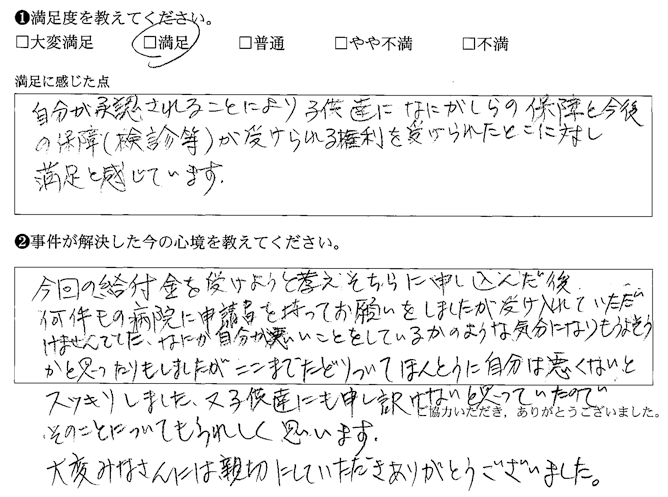 ❶満足度を教えてください。
□大変満足 □満足 □普通 □やや不満 □不満
満足に感じた点
自分が承認されることにより子供達になにがしらの保障と今後
の保障(検診等)が受けられる権利を受けられたとこに対し
満足と感じています.
❷事件が解決した今の心境を教えてください。
今回の給付金を受けようと考えそちらに申し込んだ後
何件もの病院に申請書を持ってお願いをしましたが受け入れていただい
けませんでした、なにか自分が悪いことをしているかのような気分になりもうよそう
かと思ったりもしましたがここまでたどりついてほんとうに自分は悪くないと
スッキリしました、又子供達にも申し訳けないと思っていたので
ご協力いただき，ありがとうございました。
そのことについてもうれしく思います.
大変みなさんには親切にしていただきありがとうございました。